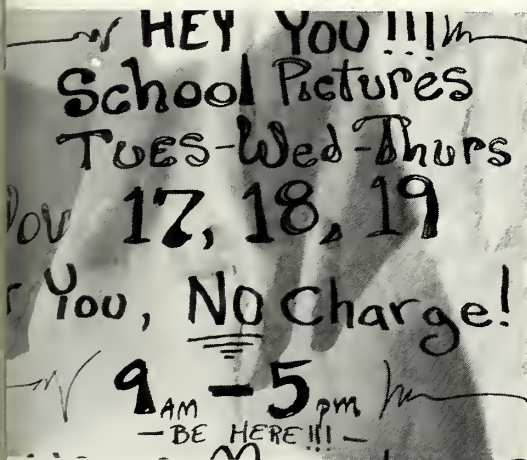 HEY YOU!!!
School Pictures
TUES-Wed-Thurs
Nov 17, 18, 19
You, NO Charge!
9AM - 5pm
- BE HERE!!! -